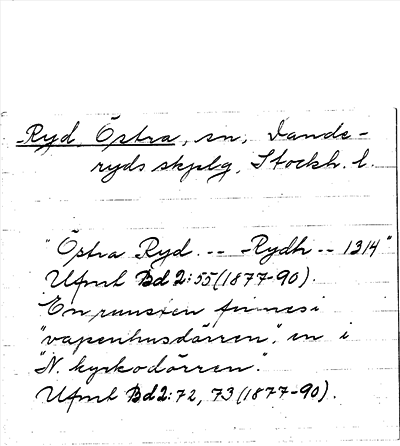 Ryd, Östra, sn, Dande-
ryds skplg, Stockh. l.
"Östra Ryd. -- -Rydh -- 1314"
Ufmt Bd 2:55 (1877-90).
En runsten finnes i
"vapenhusdörren", en i
"N. kyrkodörren."
Ufmt Bd 2:72, 73 (1877-90).